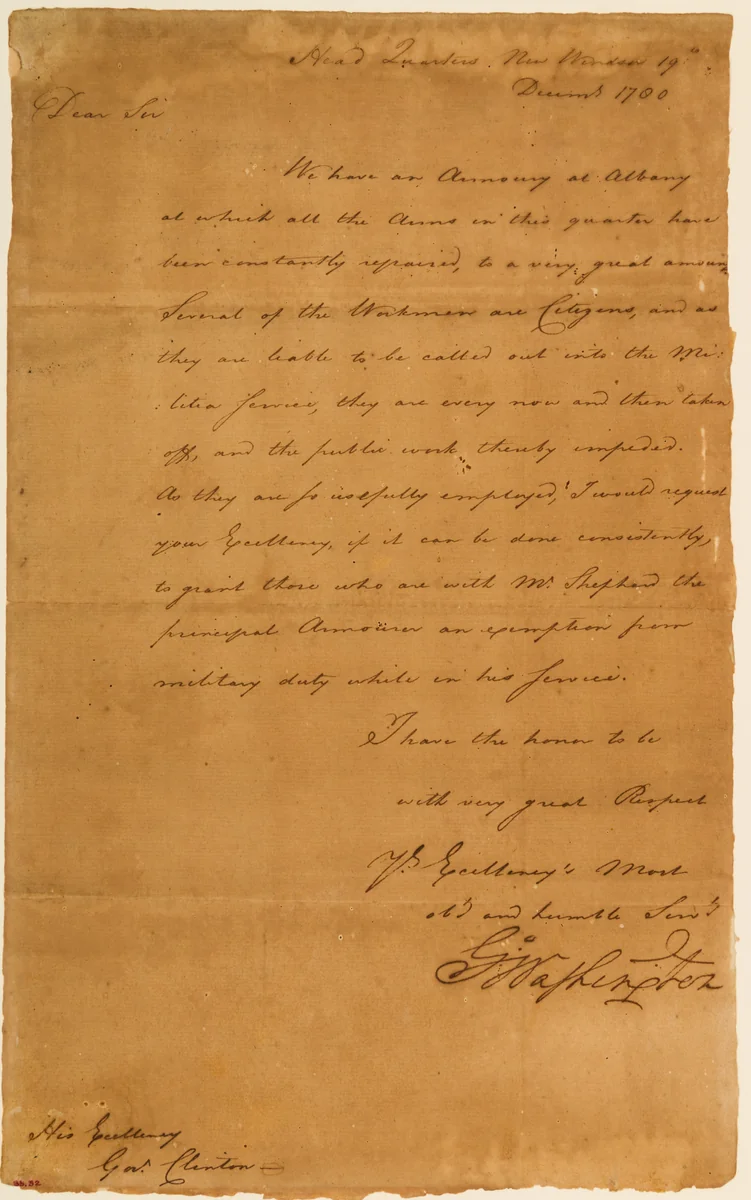 Head Quarters New Windsor 19th
Decemr 1780
Dear Sir
We have an Armoury at Albany
at which all the Arms in this quarter have
been constantly repaired, to a very great amount
Several of the Workmen are Citizens, and as
they are leable to be called out into the Mi:
:litia Service, they are every now and then taken
off, and the public work thereby impeded.
As they are so usefully employed, I would request
your Excellency, if it can be done consistently,
to grant those who are with Mr. Shephard the
principal Armourer an exemption from
military duty while in his Service.
I have the honor to be
with very great Respect
Yr. Excellency's Most
obt. and humble Servt.
Go: Washington
His Excellency
Govr. Clinton
36.32